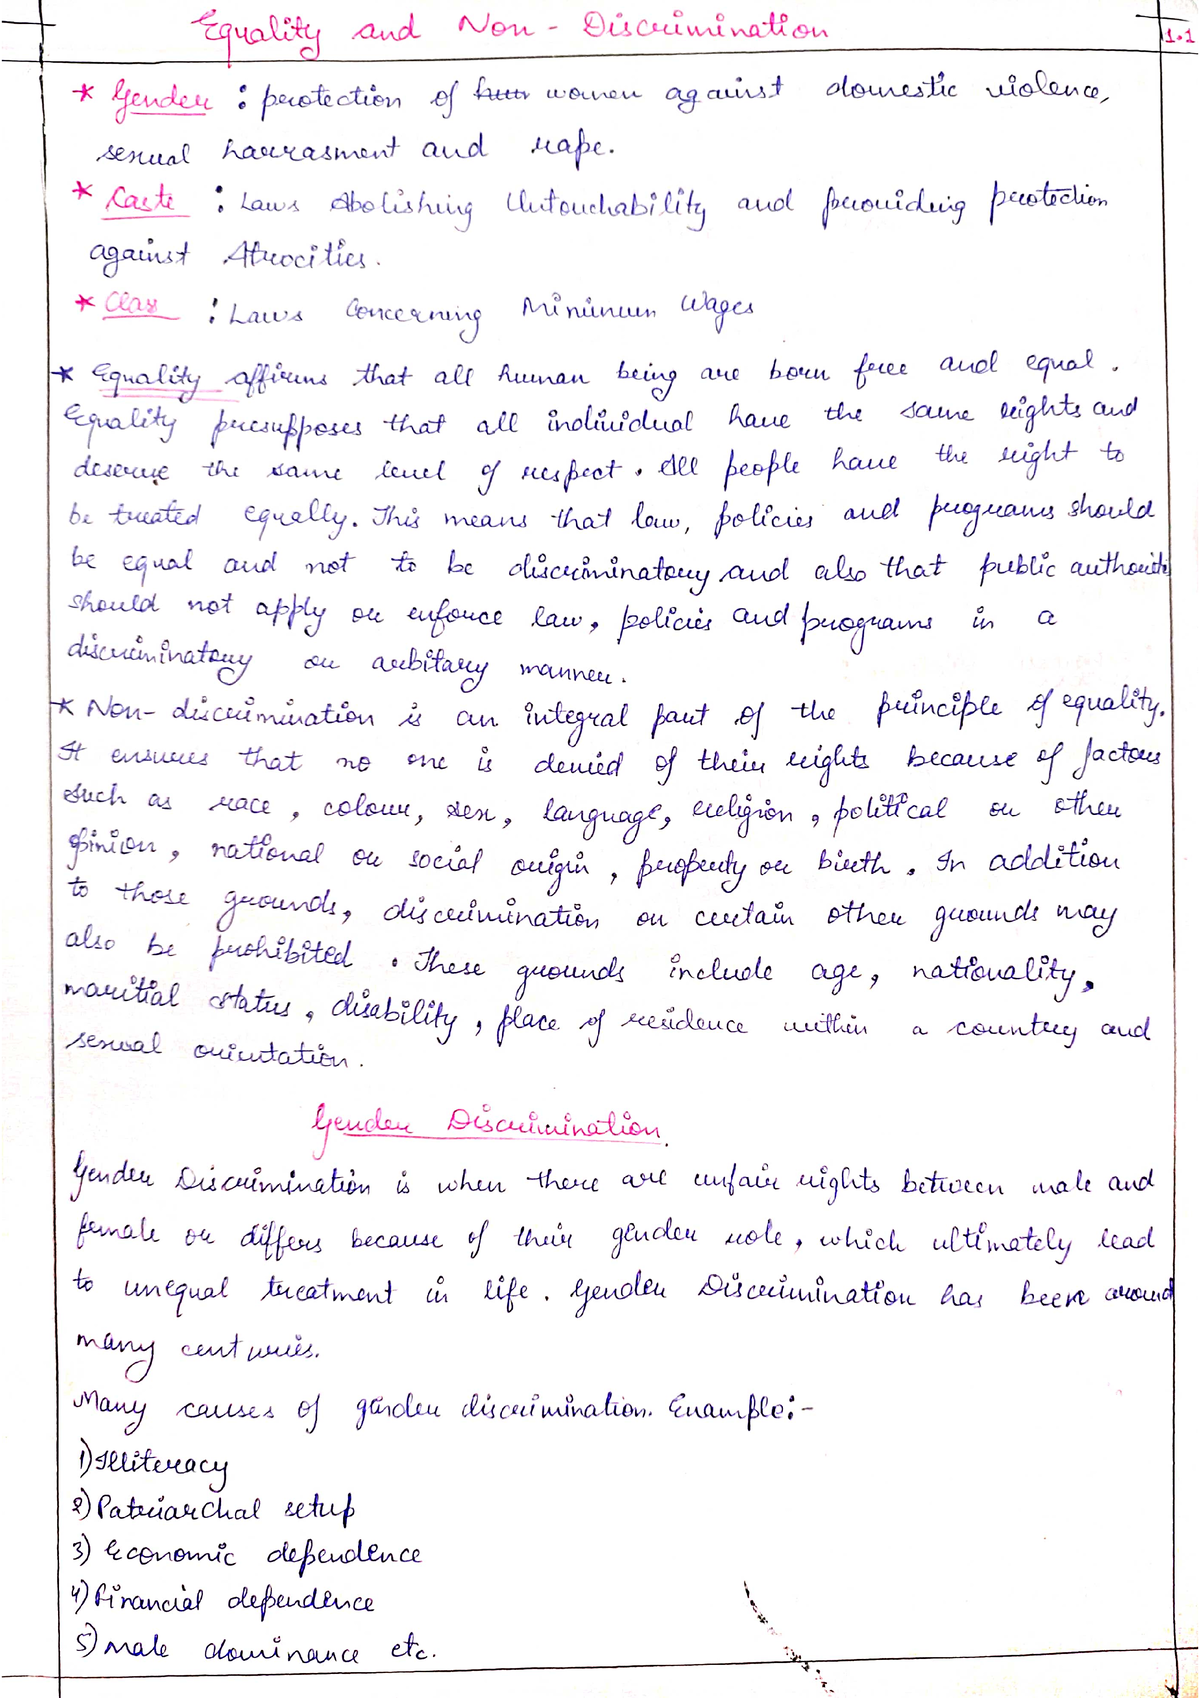 Equality and Non-Discrimination
1.1
* Gender : protection of women against domestic violence,
sexual harrasment and rape.
* Caste : Laws Abolishing Untouchability and providing protection
against Atrocities.
* Class : Laws Concerning Minimum Wages
* Equality affirms that all human being are born free and equal.
Equality presupposes that all individual have the same rights and
deserve the same level of respect. All people have the right to
be treated equally. This means that law, policies and programs should
be equal and not to be discriminatory and also that public authorities
should not apply or enforce law, policies and programs in a
discriminatory or arbitary manner.
* Non-discrimination is an integral part of the principle of equality.
It ensures that no one is denied of their rights because of factors
such as race, colour, sex, language, religion, political or other
opinion, national or social origin, property or birth. In addition
to those grounds, discrimination on certain other grounds may
also be prohibited. These grounds include age, nationality,
maritial status, disability, place of residence within a country and
sexual orientation.
Gender Discrimination.
Gender Discrimination is when there are unfair rights between male and
female or differs because of their gender role, which ultimately lead
to unequal treatment in life. Gender Discrimination has been around
many centuries.
Many causes of gender discrimination. Example:-
1) Illiteracy
2) Patriarchal setup
3) Economic dependence
4) Financial dependence
5) Male dominance etc.